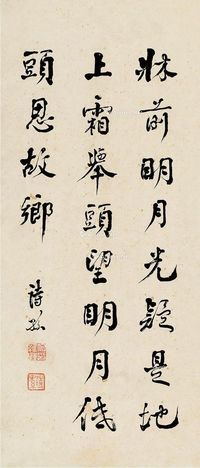 牀前明月光疑是地
上霜舉頭望明月低
頭思故鄉
詩孫